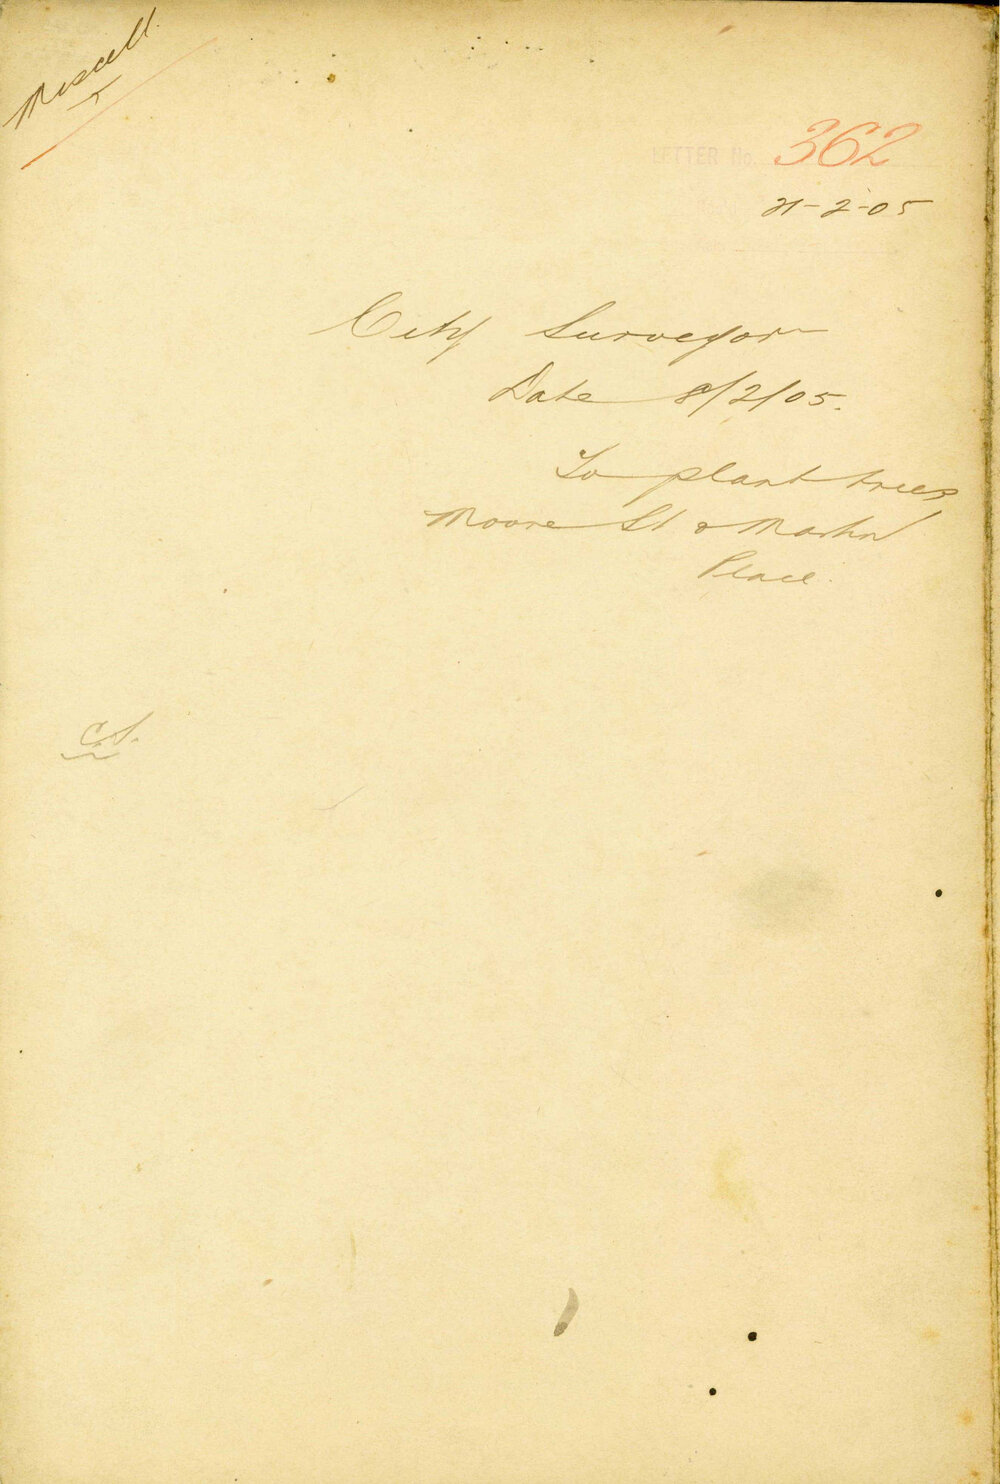 Miscell.
LETTER No. 362
21-2-05
City Surveyor
Date 8/2/05.
To plant trees
Moore St & Martin
Place.
C.S.